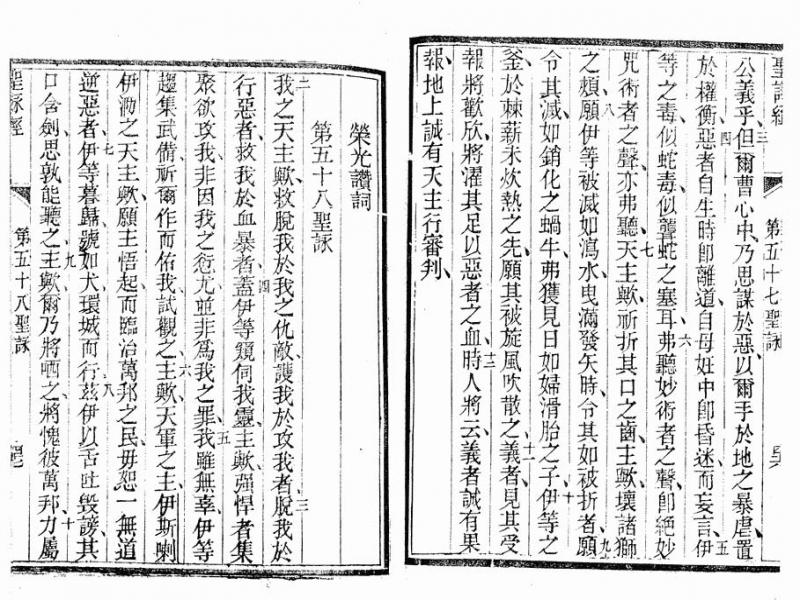 聖詠經
第五十七聖詠
公義乎、但爾曹心中、乃思謀於惡、以爾手於地之暴虐、置
於權衡、惡者自生時卽離道、自母妊中卽昏迷而妄言、伊
等之毒、似蛇毒、似聾蛇之塞耳、弗聽妙術者之聲、卽絕妙
咒術者之聲、亦弗聽、天主歟、祈折其口之齒、主歟、壞諸獅
之頰、願伊等被滅如瀉水、曳滿發矢時、令其如被折者、願
令其滅如銷化之蝸牛、弗獲見日、如婦滑胎之子、伊等之
釜、於棘薪未炊熱之先、願其被旋風吹散之、義者、見其受
報、將歡欣、將濯其足以惡者之血、時人將云、義者誠有果
報、地上誠有天主行審判、
榮光讚詞
第五十八聖詠
我之天主歟、救脫我於我之仇敵、護我於攻我者、脫我於
行惡者、救我於血暴者、蓋伊等窺伺我靈、主歟、強悍者集
聚欲攻我、非因我之愆尤、並非爲我之罪、我雖無辜、伊等
趨集武備、祈爾作而佑我、試觀之、主歟、天軍之主、伊斯喇
伊泐之天主歟、願主悟起而臨治萬邦之民、毋恕一無道
逆惡者、伊等暮歸、號如犬、環城而行、茲伊以舌吐毀謗、其
口含劍、思孰能聽之、主歟、爾乃將哂之、將愧彼萬邦、力屬
聖詠經
第五十八聖詠